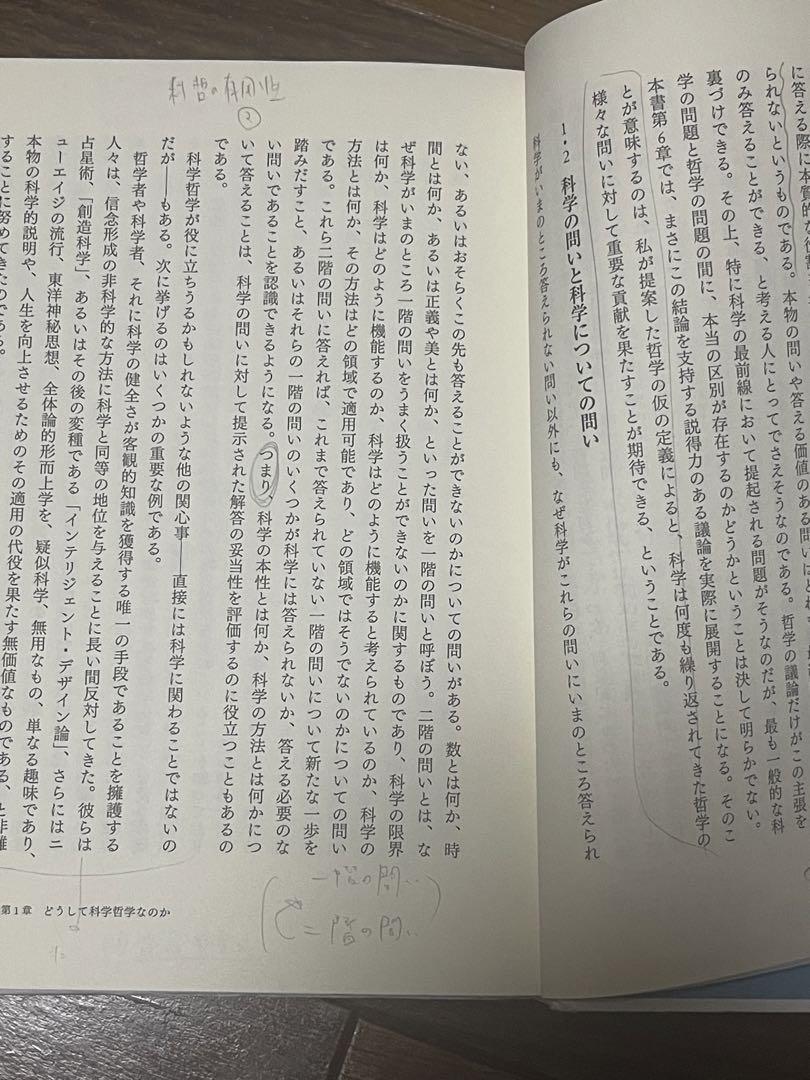 に答える際に本質的な役割
られないというものである。本物の問いや答える価値のある問いはどれも
のみ答えることができる、と考える人にとってでさえそうなのである。哲学の議論だけがこの主張を
裏づけできる。その上、特に科学の最前線において提起される問題がそうなのだが、最も一般的な科
学の問題と哲学の問題の間に、本当の区別が存在するのかどうかということは決して明らかでない。
本書第6章では、まさにこの結論を支持する説得力のある議論を実際に展開することになる。そのこ
とが意味するのは、私が提案した哲学の仮の定義によると、科学は何度も繰り返されてきた哲学の
様々な問いに対して重要な貢献を果たすことが期待できる、ということである。
1・2 科学の問いと科学についての問い
科学がいまのところ答えられない問い以外にも、なぜ科学がこれらの問いにいまのところ答えられ
科哲の有用性
②
ない、あるいはおそらくこの先も答えることができないのかについての問いがある。数とは何か、時
間とは何か、あるいは正義や美とは何か、といった問いを一階の問いと呼ぼう。二階の問いとは、な
ぜ科学がいまのところ一階の問いをうまく扱うことができないのかに関するものであり、科学の限界
は何か、科学はどのように機能するのか、科学はどのように機能すると考えられているのか、科学の
方法とは何か、その方法はどの領域で適用可能であり、どの領域ではそうでないのかについての問い
である。これら二階の問いに答えれば、これまで答えられていない一階の問いについて新たな一歩を
踏みだすこと、あるいはそれらの一階の問いのいくつかが科学には答えられないか、答える必要のな
い問いであることを認識できるようになる。つまり、科学の本性とは何か、科学の方法とは何かにつ
いて答えることは、科学の問いに対して提示された解答の妥当性を評価するのに役立つこともあるの
である。
科学哲学が役に立ちうるかもしれないような他の関心事――直接には科学に関わることではないの
だが――もある。次に挙げるのはいくつかの重要な例である。
哲学者や科学者、それに科学の健全さが客観的知識を獲得する唯一の手段であることを擁護する
人々は、信念形成の非科学的な方法に科学と同等の地位を与えることに長い間反対してきた。彼らは
占星術、「創造科学」、あるいはその後の変種である「インテリジェント・デザイン論」、さらにはニ
ューエイジの流行、東洋神秘思想、全体論的形而上学を、疑似科学、無用なもの、単なる趣味であり、
本物の科学的説明や、人生を向上させるためのその適用の代役を果たす無価値なものである、と非難
することに努めてきたのである。
一階の問い
二階の問い
第1章 どうして科学哲学なのか